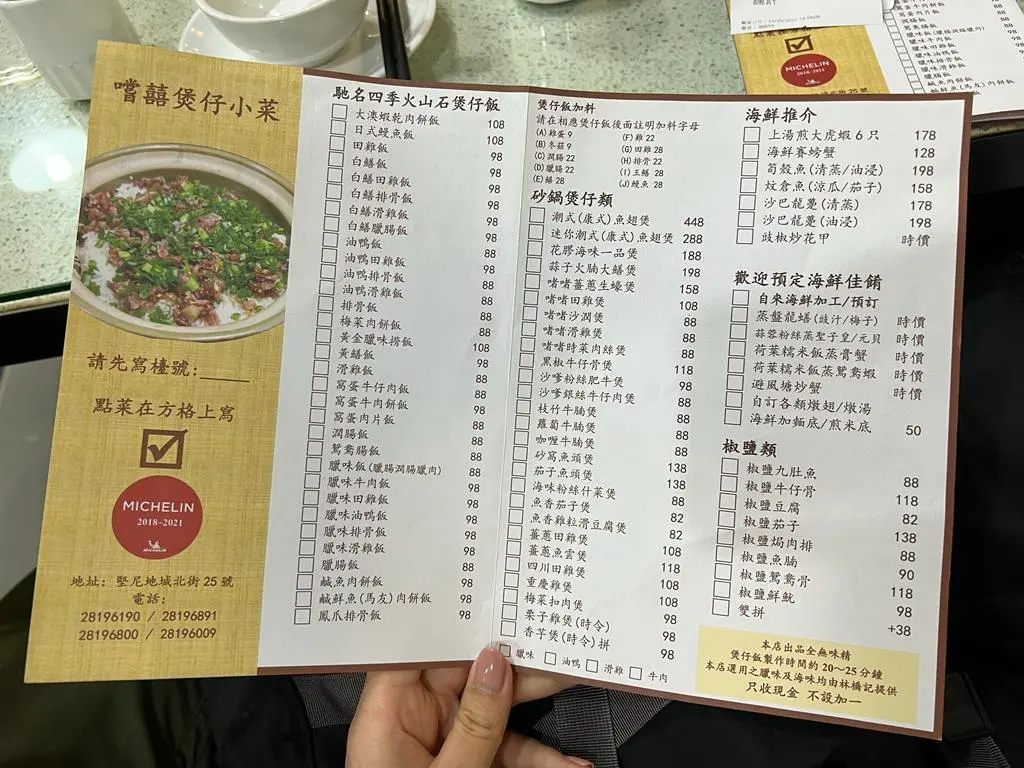 嚐囍煲仔小菜
請先寫檯號:____
點菜在方格上寫
MICHELIN
2018-2021
MICHELIN
地址: 堅尼地城北街25號
電話:
28196190 / 28196891
28196800 / 28196009
馳名四季火山石煲仔飯
大澳蝦乾肉餅飯 108
日式鰻魚飯 108
田雞飯 98
白鱔飯 98
白鱔田雞飯 98
白鱔排骨飯 98
白鱔滑雞飯 98
白鱔臘腸飯 98
油鴨飯 98
油鴨田雞飯 98
油鴨排骨飯 88
油鴨滑雞飯 88
排骨飯 88
梅菜肉餅飯 88
黃金臘味撈 108
黃鱔飯 98
滑雞飯 88
窩蛋牛仔肉飯 88
窩蛋牛肉餅飯 88
窩蛋肉片飯 88
潤腸飯 88
鴛鴦腸飯 88
臘味飯(臘腸潤腸臘肉) 88
臘味牛肉飯 98
臘味田雞飯 98
臘味油鴨飯 98
臘味排骨飯 98
臘味滑雞飯 98
臘腸飯 88
鹹魚肉餅飯 98
鹹鮮魚(馬友)肉餅飯 98
鳳爪排骨飯 98
煲仔飯加料
請在相應煲仔飯後面註明加料字母
(A) 雞蛋 9 (F) 雞 22
(B) 冬菇 9 (G) 田雞 28
(C) 潤腸 22 (H) 排骨 22
(D) 臘腸 22 (I) 王鱔 28
(E) 鱔 28 (J) 鰻魚 28
砂鍋煲仔類
潮式(康式)魚翅煲 448
迷你潮式(康式)魚翅煲 288
花膠海味一品煲 188
蒜子火腩大鱔煲 198
啫啫薑蔥生蠔煲 158
啫啫田雞煲 108
啫啫沙潤煲 88
啫啫滑雞煲 88
啫啫時菜肉絲煲 88
黑椒牛仔骨煲 118
沙爹粉絲肥牛煲 98
沙爹銀絲牛仔肉煲 88
枝竹牛腩煲 88
蘿蔔牛腩煲 88
咖喱牛腩煲 88
砂窩魚頭煲 138
茄子魚頭煲 138
海味粉絲什菜煲 88
魚香茄子煲 82
魚香雞粒滑豆腐煲 82
薑蔥田雞煲 108
薑蔥魚雲煲 118
四川田雞煲 108
重慶雞煲 108
梅菜扣肉煲 98
栗子雞煲(時令) 98
香芋煲(時令)拼 98
臘味 油鴨 滑雞 牛肉
海鮮推介
上湯煎大虎蝦6只 178
海鮮賽螃蟹 128
筍殼魚(清蒸/油浸) 198
炆倉魚(涼瓜/茄子) 158
沙巴龍躉(清蒸) 178
沙巴龍躉(油浸) 198
豉椒炒花甲 時價
歡迎預定海鮮佳餚
自來海鮮加工/預訂
蒸盤龍鱔(豉汁/梅子) 時價
蒜蓉粉絲蒸聖子皇/元貝 時價
荷葉糯米飯蒸膏蟹 時價
荷葉糯米飯蒸鴛鴦蝦 時價
避風塘炒蟹 時價
自訂各類燉翅/燉湯
海鮮加麵底/煎米底 50
椒鹽類
椒鹽九肚魚 88
椒鹽牛仔骨 118
椒鹽豆腐 82
椒鹽茄子 138
椒鹽焗肉排 88
椒鹽魚腩 90
椒鹽鴛鴦骨 118
椒鹽鮮魷 98
雙拼 +38
本店出品全無味精
煲仔飯製作時間約20~25分鐘
本店選用之臘味及海味均由林橋記提供
只收現金 不設加一
MICHELIN
2018-2021